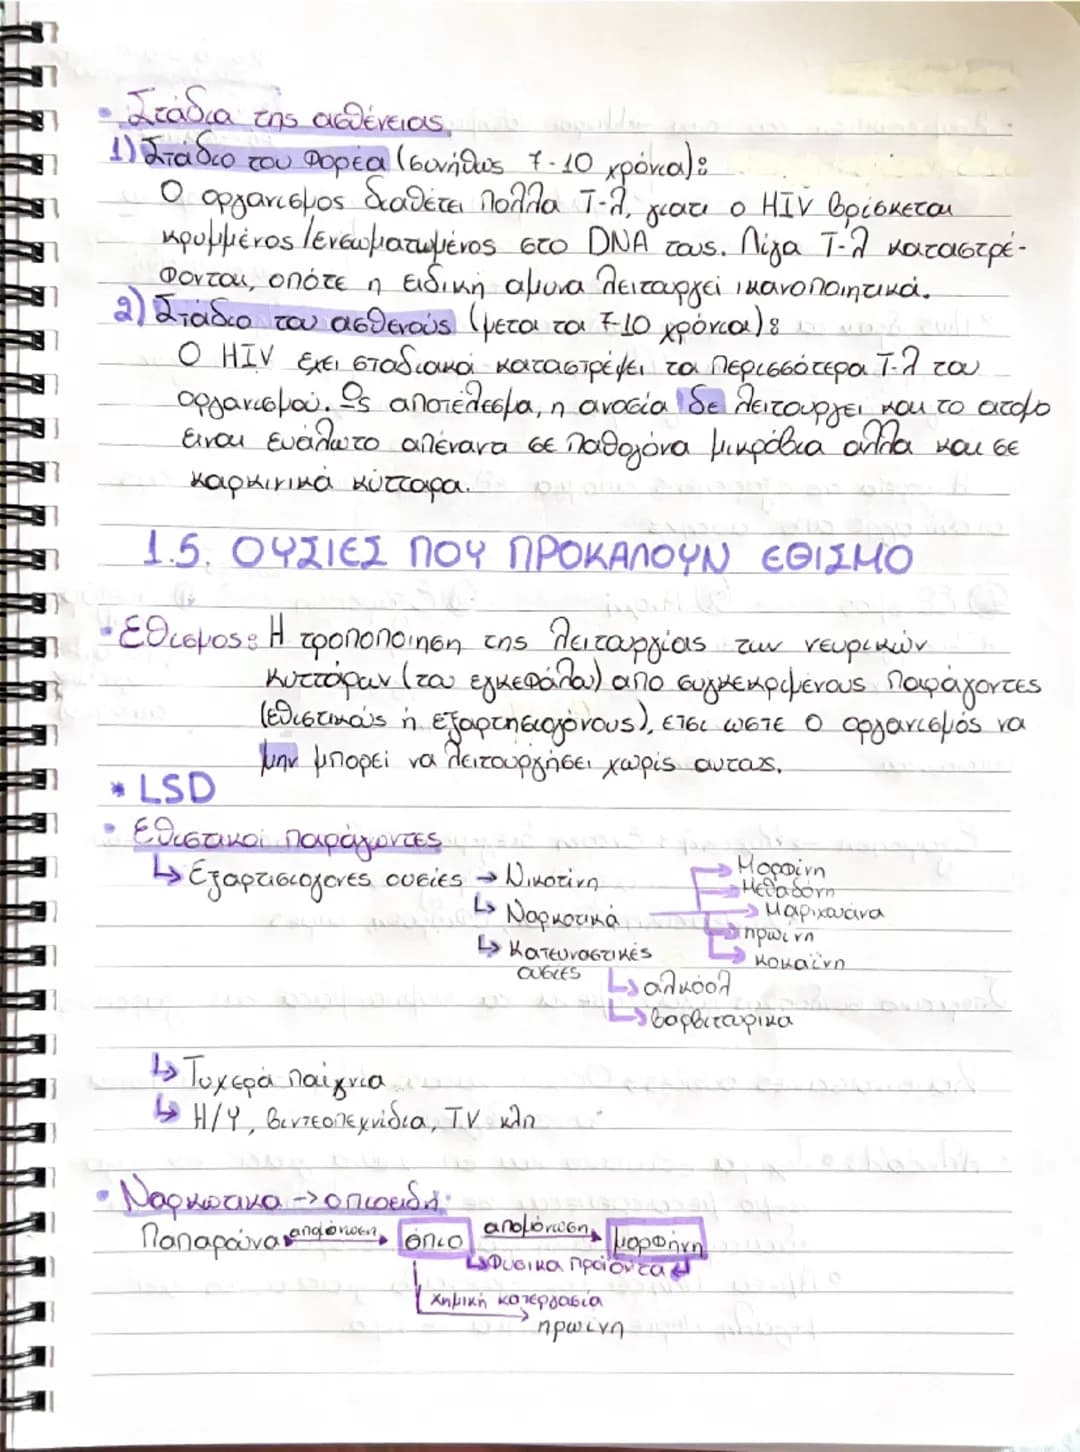 • Στάδια της ασθένειας
1) Στάδιο του Φορέα (συνήθως 7-10 χρόνια):
Ο οργανισμος διαθέτει πολλα Τ-λ, γιατι ο HIV βρίσκεται
κρυμμένος/ενσωματωμένος στο DNA τους. Λίγα Τ-λ καταστρέ-
φονται, οπότε η ειδική αμυνα λειτουργεί ικανοποιητικά.
2) Στάδιο του ασθενούς (μετα τα 7-10 χρόνια):
Ο HIV εχει σταδιακά καταστρέψει τα περισσότερα Τ-λ του
οργανισμού. Ως αποτέλεσμα, η ανοσία δε λειτουργει και το ατομο
ειναι ευάλωτο απέναντι σε παθογόνα μικρόβια αλλα και σε
καρκινικά κύτταρα.
1.5. ΟΥΣΙΕΣ ΠΟΥ ΠΡΟΚΑΛΟΥΝ ΕΘΙΣΜΟ
• Εθισμος: Η τροποποιηση της λειτουργίας των νευρικών
κυττάρων (του εγκεφάλου) απο συγκεκριμένους παράγοντες
(εθιστικούς ή εξαρτησιογόνους), ετσι ωστε ο οργανισμός να
μην μπορεί να λειτουργήσει χωρίς αυτους.
* LSD
• Εθιστικοί παράγοντες
↳ Εξαρτισιογονες ουσίες → Νικοτίνη
↳ Ναρκοτικά → Μορφίνη
→ Μεθαδόνη
→ Μαριχουάνα
→ ηρωίνη
→ κοκαϊνη
↳ Κατευναστικές
ουσιες
↳ αλκοόλ
↳ βαρβιτουρικά
↳ Τυχερά παίχνια
↳ Η/Υ, βιντεοπεχνίδια, TV κλπ
• Ναρκωτικα → οπιοειδή:
Παπαρούνα απομόνωση → όπιο απομόνωση → μορφήνη
↳ Φυσικα προϊοντα ↲
χημική κατεργασία
→ ηρωινη